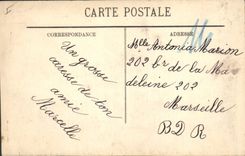 CARTE POSTALE
CORRESPONDANCE
ADRESSE
Un grosse
caresse de ton
amie
Marcelle
Mlle Antonia Marion
202 br de la Ma
deleine 202
Marseille
B D R